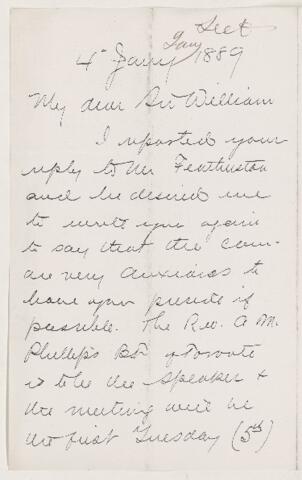 Sect
4" Jany Jany 1889
My dear Sir William
I reported your
reply to Mr Featherston
and he desired me
to write you again
to say that the Com-
are very anxious to
have you preside if
possible. The Rev. A M.
Phillips BD of Toronto
is to be the speaker &
the meeting will be
the first Tuesday (5th)